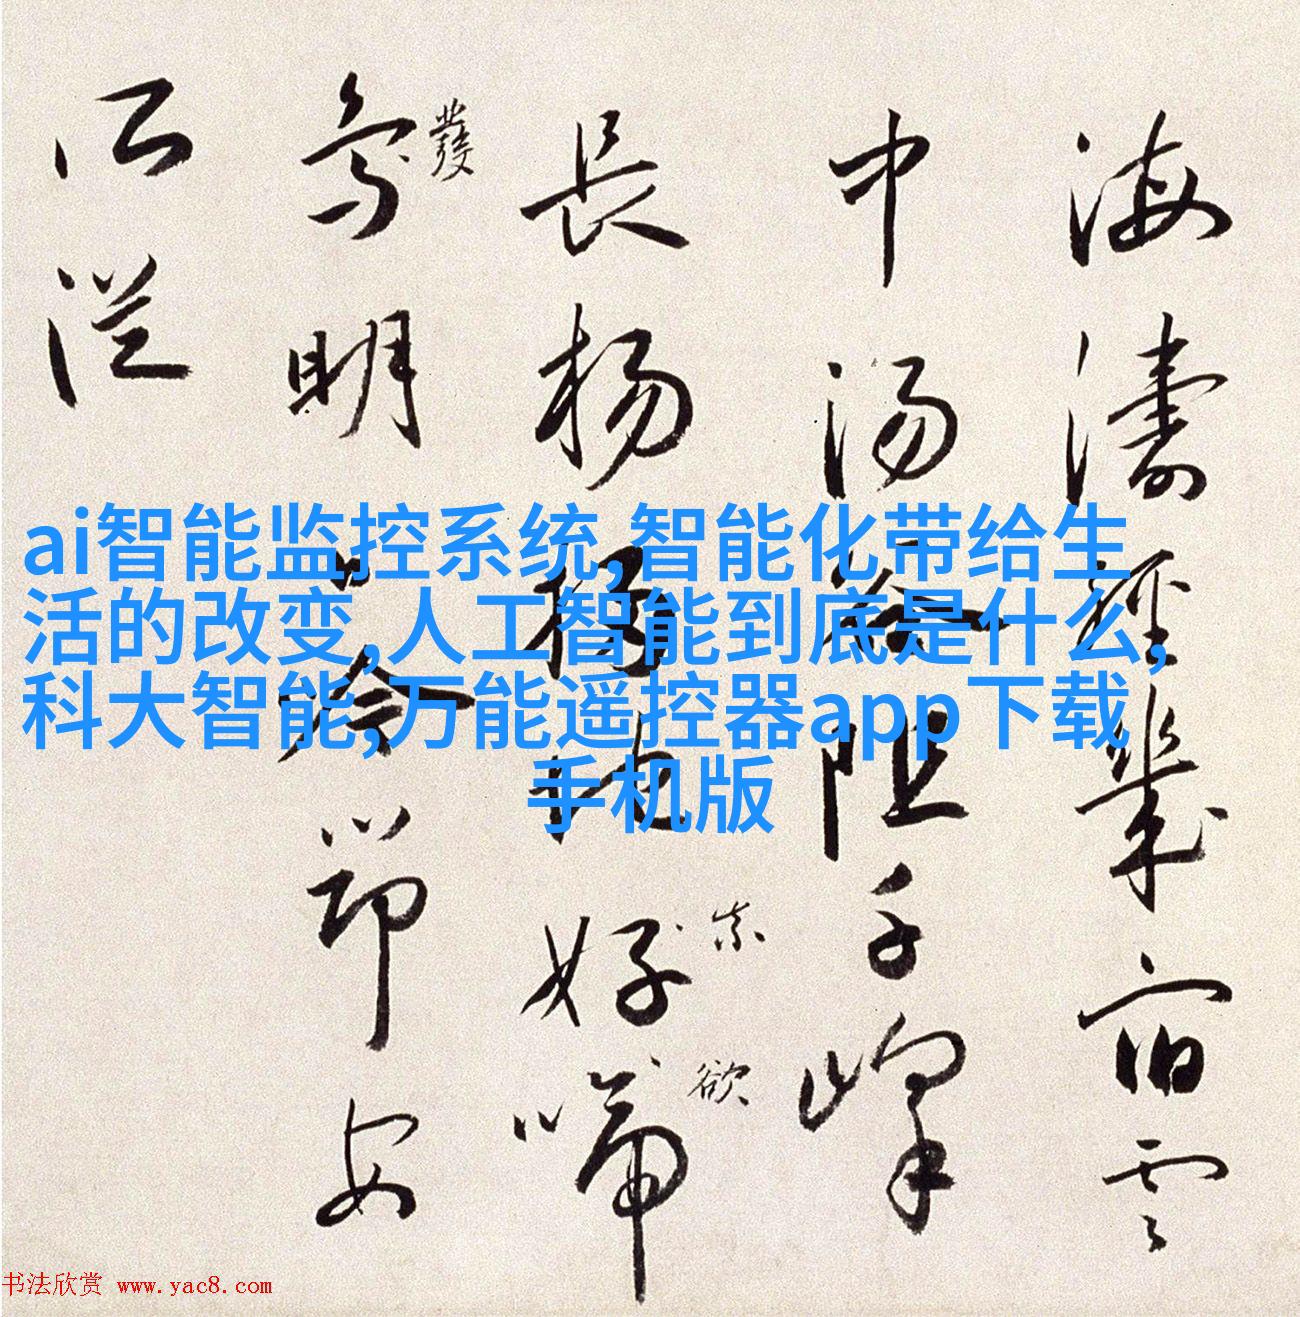 ai智能监控系统,智能化带给生
活的改变,人工智能到底是什么,
科大智能,万能遥控器app下载
手机版
海濤經幾宿雲
中湯谷阻千峰
長楊地好啼
發
明安
書法欣赏 www.yac8.com